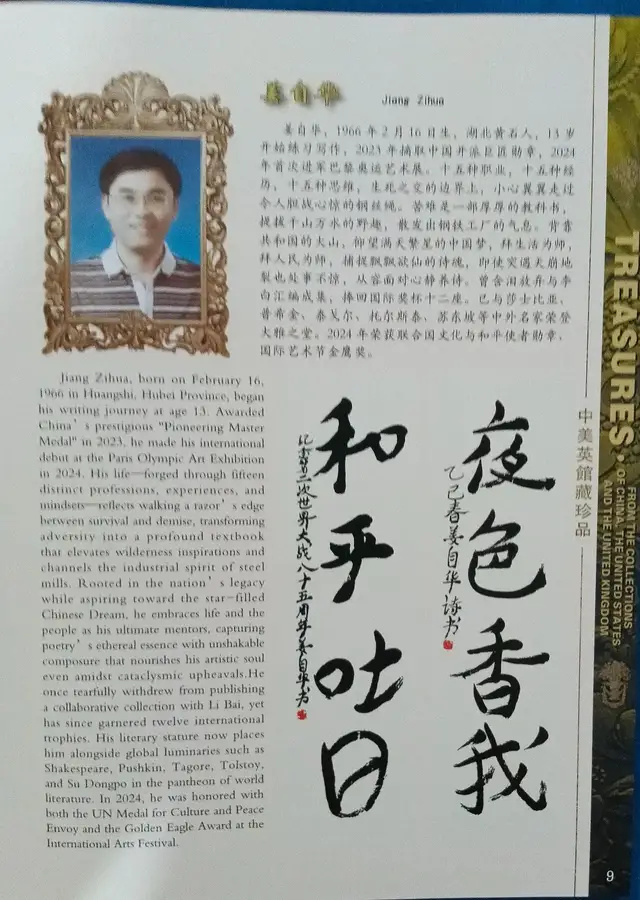 姜自华 Jiang Zihua
姜自华，1966年2月16日生，湖北黄石人，13岁
开始练习写作，2023年摘取中国开派巨匠勋章，2024
年首次进军巴黎奥运艺术展。十五种职业，十五种经
历，十五种思维，生死之交的边界上，小心翼翼走过
令人胆战心惊的钢丝绳。苦难是一部厚厚的教科书，
提拔千山万水的野趣，散发出钢铁工厂的气息。背靠
共和国的大山，仰望满天繁星的中国梦，拜生活为师，
拜人民为师，捕捉飘飘欲仙的诗魂，即使突遇天崩地
裂也处事不惊，从容面对心静养侍。曾含泪放弃与李
白汇编成集，捧回国际奖杯十二座。已与莎士比亚、
普希金、泰戈尔、托尔斯泰、苏东坡等中外名家荣登
大雅之堂。2024年荣获联合国文化与和平使者勋章、
国际艺术节金鹰奖。
Jiang Zihua, born on February 16,
1966 in Huangshi, Hubei Province, began
his writing journey at age 13. Awarded
China's prestigious "Pioneering Master
Medal" in 2023, he made his international
debut at the Paris Olympic Art Exhibition
in 2024. His life—forged through fifteen
distinct professions, experiences, and
mindsets—reflects walking a razor's edge
between survival and demise, transforming
adversity into a profound textbook
that elevates wilderness inspirations and
channels the industrial spirit of steel
mills. Rooted in the nation's legacy
while aspiring toward the star-filled
Chinese Dream, he embraces life and the
people as his ultimate mentors, capturing
poetry's ethereal essence with unshakable
composure that nourishes his artistic soul
even amidst cataclysmic upheavals.He
once tearfully withdrew from publishing
a collaborative collection with Li Bai, yet
has since garnered twelve international
trophies. His literary stature now places
him alongside global luminaries such as
Shakespeare, Pushkin, Tagore, Tolstoy,
and Su Dongpo in the pantheon of world
literature. In 2024, he was honored with
both the UN Medal for Culture and Peace
Envoy and the Golden Eagle Award at the
International Arts Festival.
夜色香我
乙巳春姜自华诗书
和平吐日
纪念第二次世界大战八十五周年姜自华书
中美英館藏珍品
TREASURES
FROM THE COLLECTIONS
OF CHINA, THE UNITED STATES
AND THE UNITED KINGDOM
9